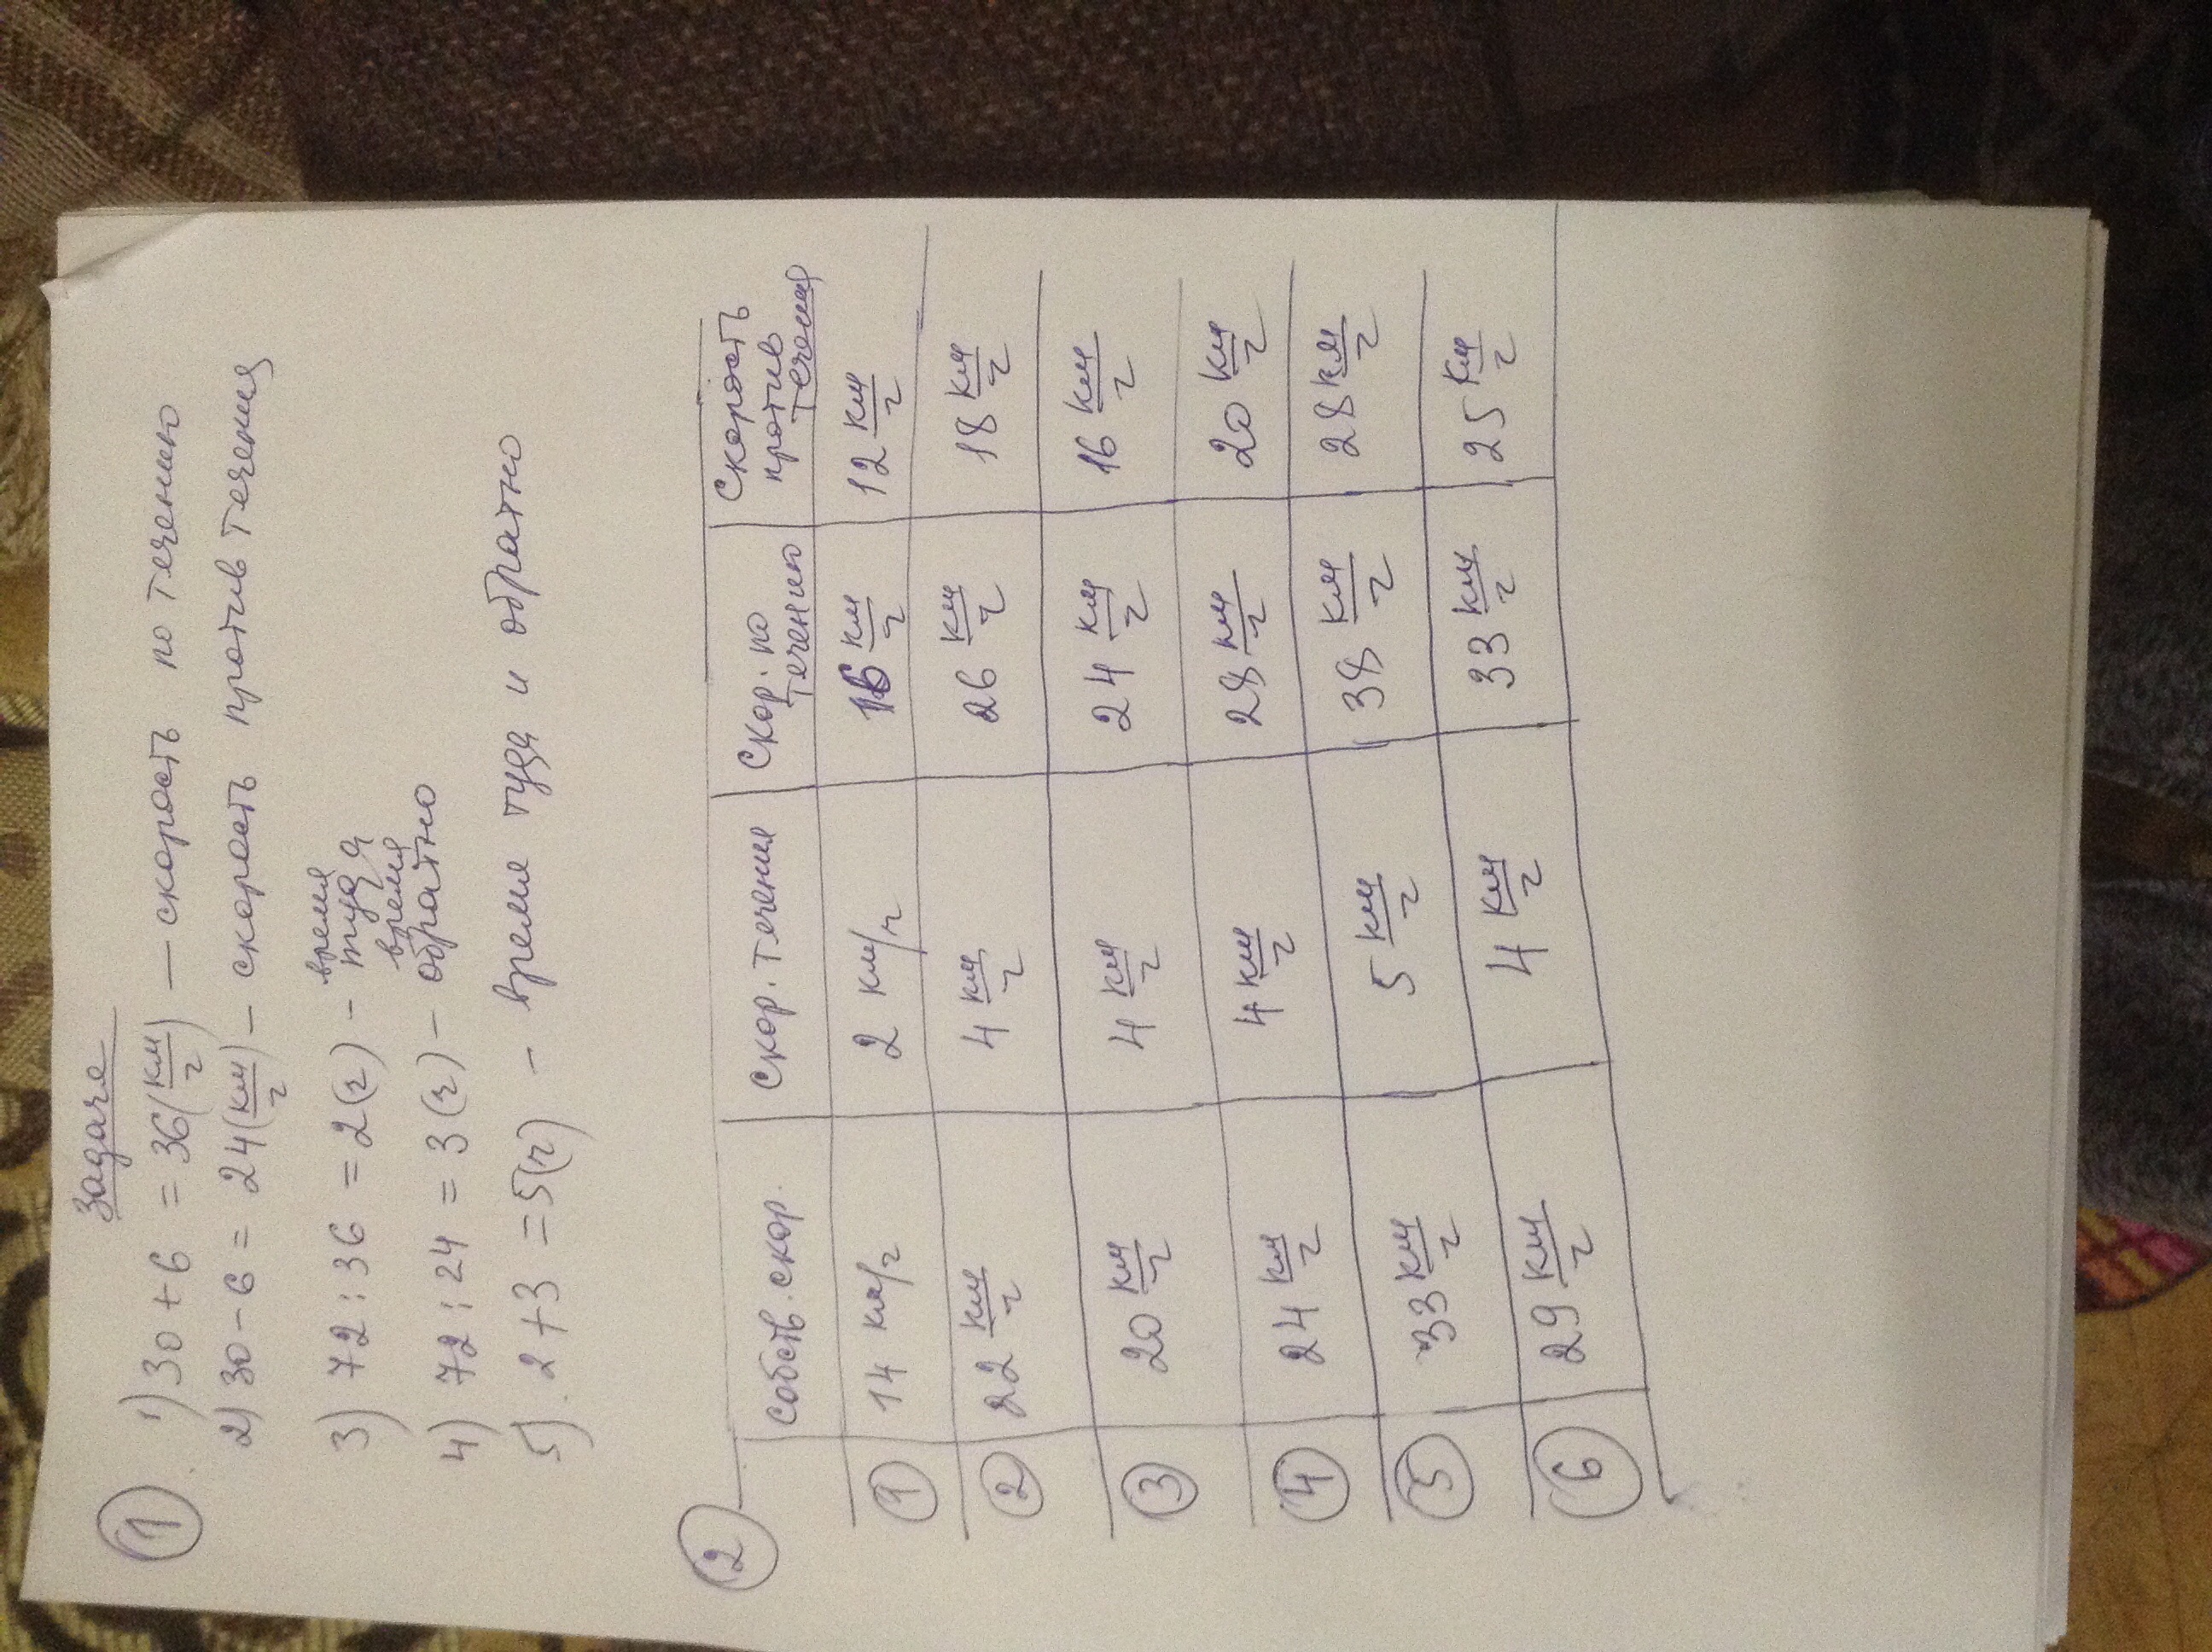 Задаче
① 1) 30 + 6 = 36 (км/ч) — скорость по течению
2) 30 - 6 = 24 (км/ч) — скорость против течения
3) 72 : 36 = 2 (ч) - время туда
4) 72 : 24 = 3 (ч) - время обратно
5). 2 + 3 = 5 (ч) - время туда и обратно
②
Собств. скор. | Скор. течения | Скор. по течению | Скорость против течения
① 14 км/ч | 2 км/ч | 16 км/ч | 12 км/ч
② 22 км/ч | 4 км/ч | 26 км/ч | 18 км/ч
③ 20 км/ч | 4 км/ч | 24 км/ч | 16 км/ч
④ 24 км/ч | 4 км/ч | 28 км/ч | 20 км/ч
⑤ 33 км/ч | 5 км/ч | 38 км/ч | 28 км/ч
⑥ 29 км/ч | 4 км/ч | 33 км/ч | 25 км/ч